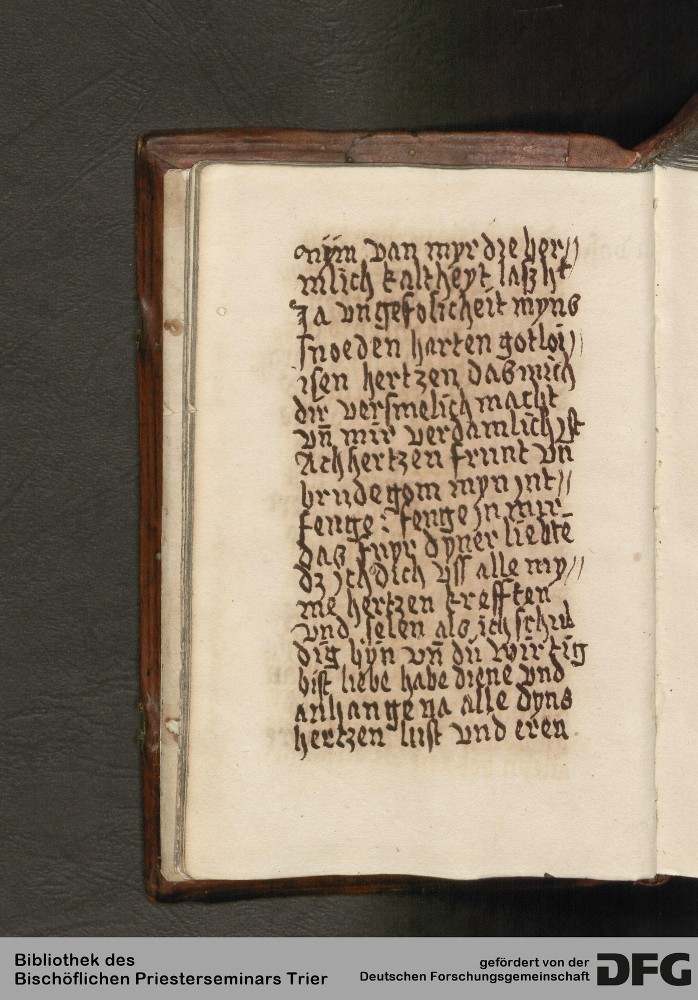 nym van myr dze her//
mlich kaltheyt laszht
Ja vngefolicheit myns
snoeden harten gotloi//
isen hertzen das mich
dir versmelich macht
vn̄ mir verdamlich ist
Ach hertzen frunt vn̄
brudegom myn jnt//
fenge: fenge jn mir
das fuyr dyner liebte
dz ich dich vss alle my//
me hertzen krefften
vnd selen als ich schul
dig byn vn̄ du wirtig
bist liebe habe diene vnd
anhange na alle dyns
hertzen lust vnd eren
Bibliothek des
Bischöflichen Priesterseminars Trier
gefördert von der
Deutschen Forschungsgemeinschaft
DFG